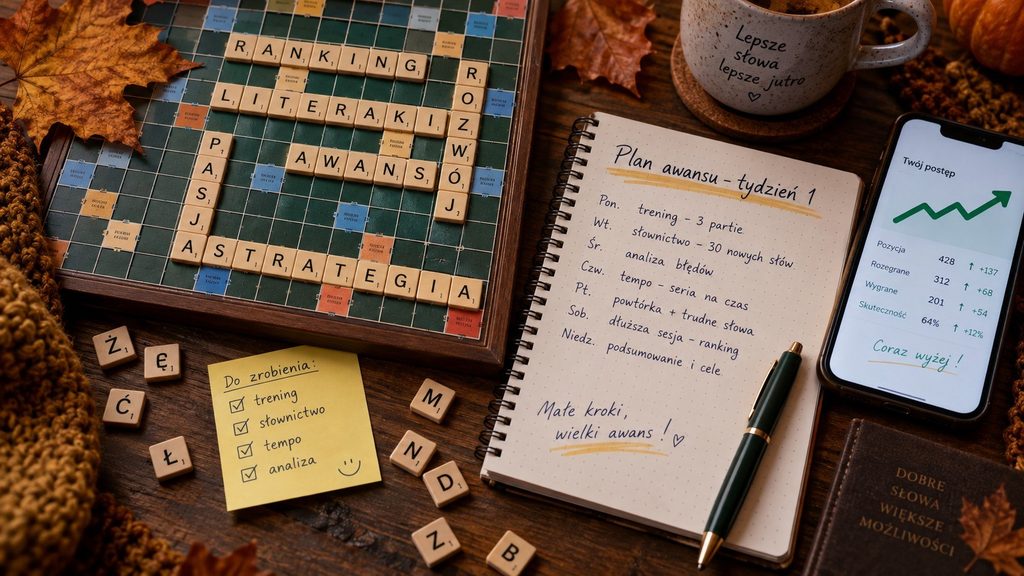 RANKING
LITERAKI
ROZWÓJ
AWANS
PASJA
STRATEGIA
Ż
Ę
Ć
Ł
M
N
D
Z
B
Do zrobienia:
trening
słownictwo
tempo
analiza
Plan awansu – tydzień 1
Pon. trening – 3 partie
Wt. słownictwo – 30 nowych słów
Śr. analiza błędów
Czw. tempo – seria na czas
Pt. powtórka + trudne słowa
Sob. dłuższa sesja – ranking
Niedz. podsumowanie i cele
Małe kroki,
wielki awans!
Lepsze
słowa
lepsze jutro
Twój postęp
Pozycja 428 ↑ +137
Rozegrane 312 ↑ +68
Wygrane 201 ↑ +54
Skuteczność 64% ↑ +12%
Coraz wyżej!
DOBRE
SŁOWA
WIĘKSZE
MOŻLIWOŚCI